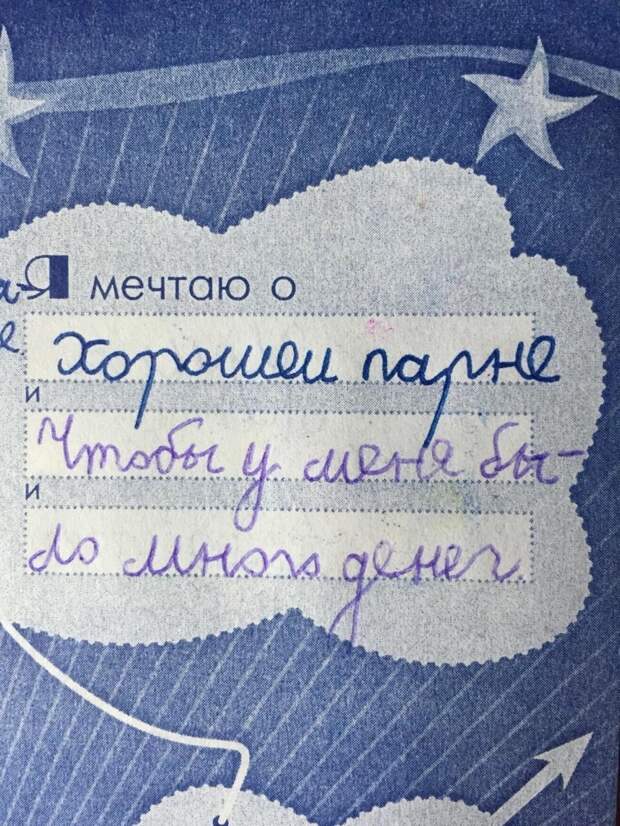 а-Я мечтаю о
е хорошем парне
и
Чтобы у меня бы-
и
ло много денег.